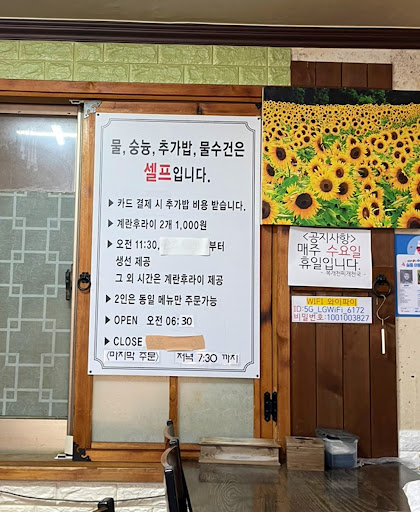 물, 숭늉, 추가밥, 물수건은
셀프입니다.
▶ 카드 결제 시 추가밥 비용 받습니다.
▶ 계란후라이 2개 1,000원
▶ 오전 11:30, 부터
생선 제공
그 외 시간은 계란후라이 제공
▶ 2인은 통일 메뉴만 주문가능
▶ OPEN 오전 06:30
▶ CLOSE
(마지막 주문) 저녁 7:30 까지
<공지사항>
매주 수요일
휴일입니다.
WIFI 와이파이
ID:5G_LGWiFi_6172
비밀번호:1001003827